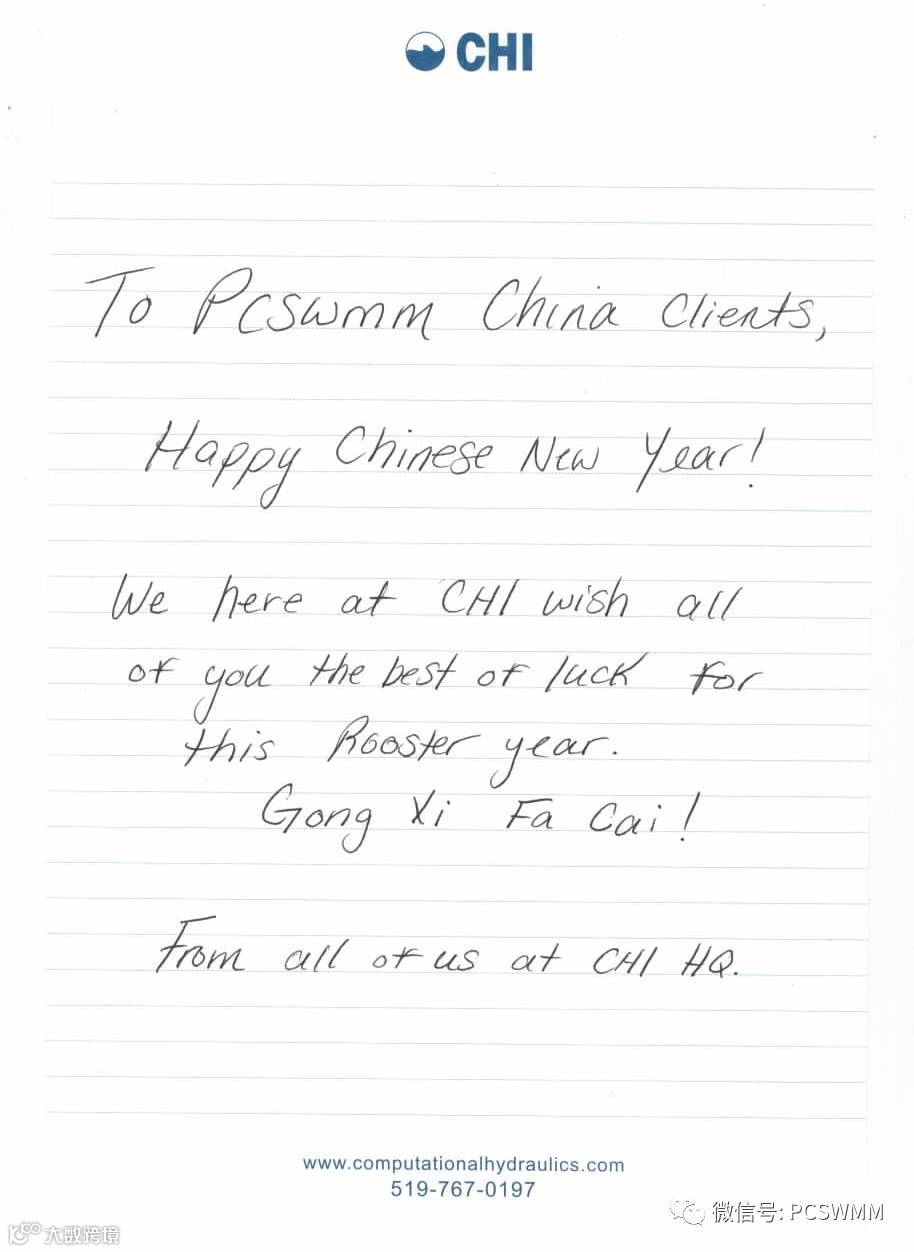 CHI
To PCSWMM China Clients,
Happy Chinese New Year!
We here at CHI wish all
of you the best of luck for
this Rooster year.
Gong Xi Fa Cai!
From all of us at CHI HQ.
www.computationalhydraulics.com
519-767-0197
微信号: PCSWMM
大数跨境